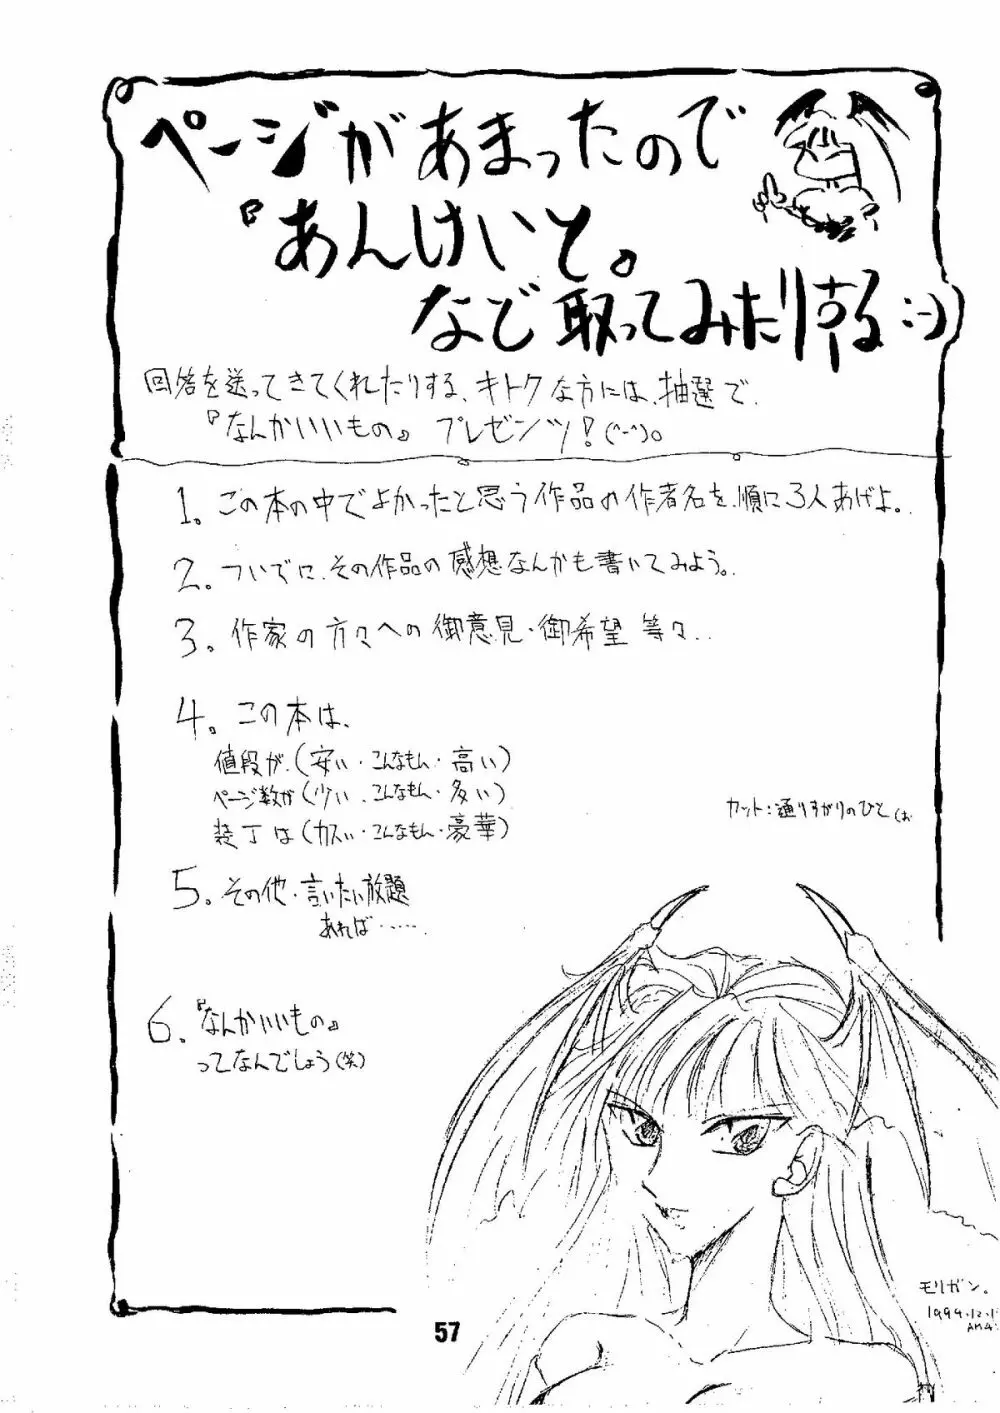 ページがあまったので
『あんけいと。
など取ってみたりする:-)
回答を送ってきてくれたりする、キトクな方には、抽選で、
『なんかいいもの』 プレゼンツ!(^-^)。
1。この本の中でよかったと思う作品の作者名を、順に3人あげよ。
2。ついでに、その作品の感想なんかも書いてみよう。
3。作家の方々への御意見・御希望 等々..
4。この本は、
値段が、(安い・こんなもん・高い)
ページ数が(少い・こんなもん・多い)
装丁は(カスい・こんなもん・豪華)
カット:通りすがりのひと(お
5。その他・言いたい放題
あれば……
6。『なんかいいもの』
ってなんでしょう(笑)
モリガン。
1994.12.1
AM4:
57